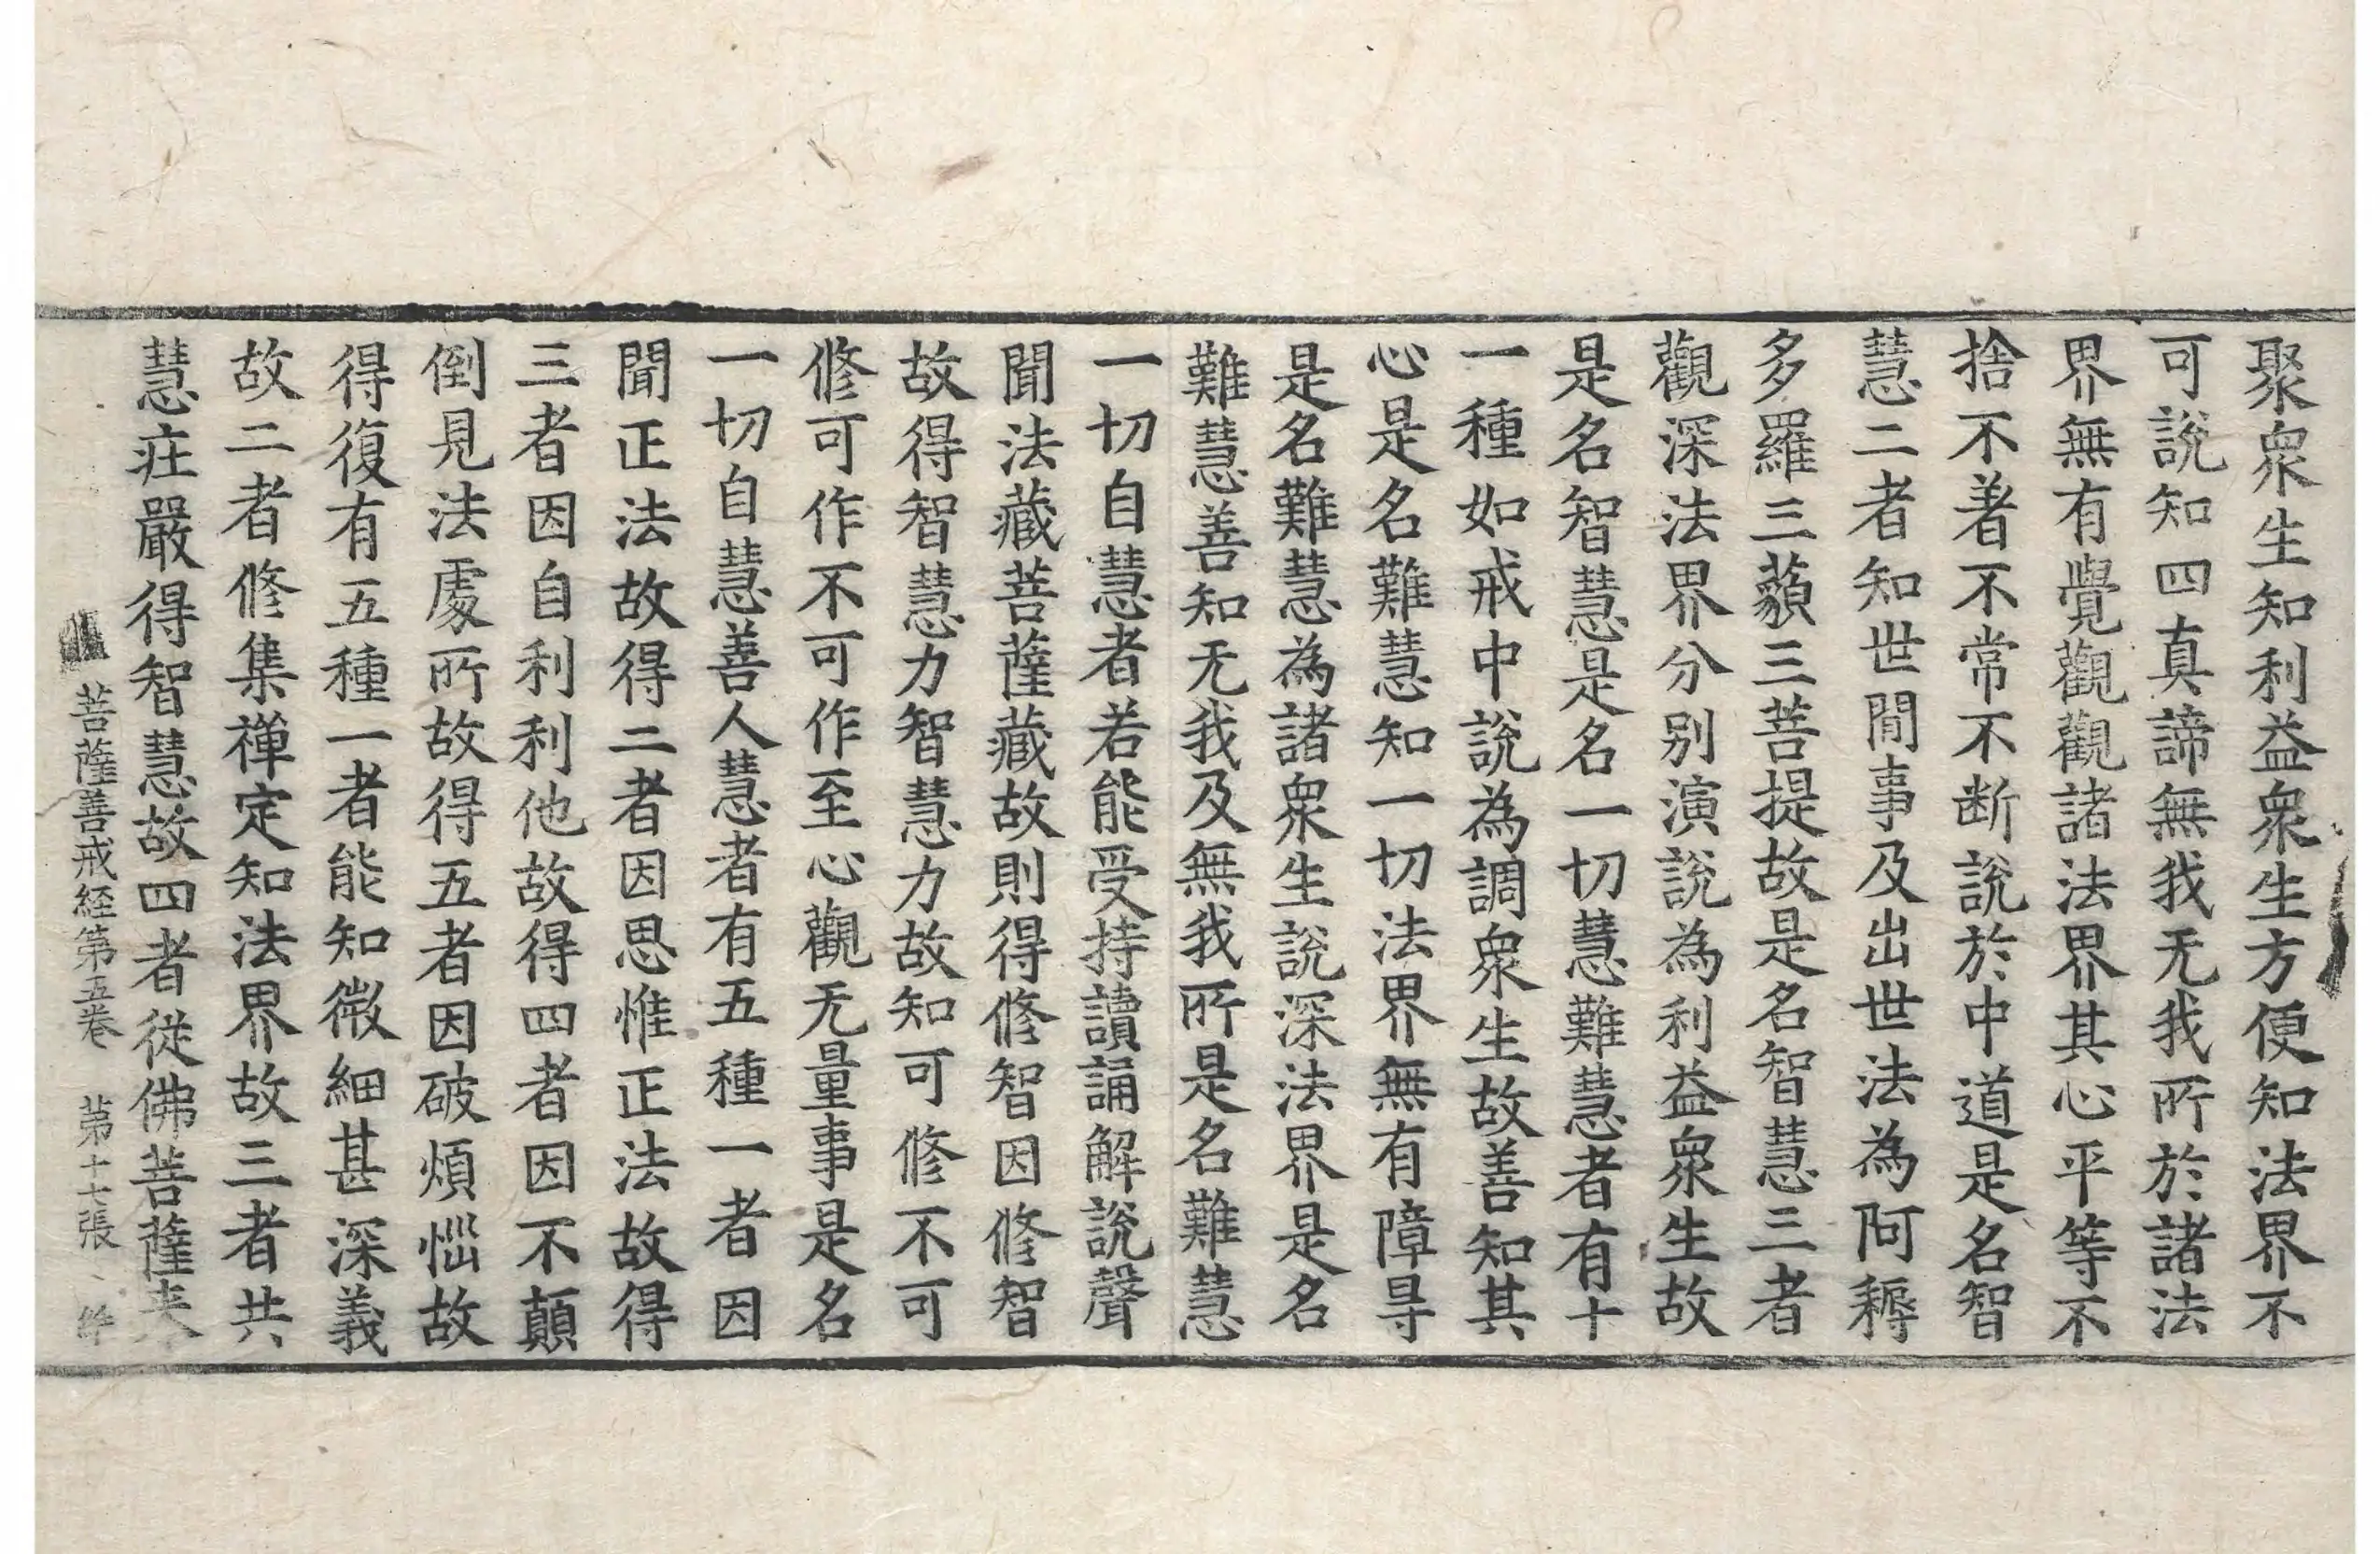 聚衆生知利益衆生方便知法界不
可說知四真諦無我无我所於諸法
界無有覺觀觀諸法界其心平等不
捨不著不常不断說於中道是名智
慧二者知世閒事及出世法為阿耨
多羅三藐三菩提故是名智慧三者
觀深法界分別演說為利益衆生故
是名智慧是名一切慧難慧者有十
一種如戒中說為調衆生故善知其
心是名難慧知一切法界無有障㝵
是名難慧為諸衆生說深法界是名
難慧善知无我及無我所是名難慧
一切自慧者若能受持讀誦解說聲
聞法藏菩薩藏故則得修智因修智
故得智慧力智慧力故知可修不可
修可作不可作至心觀无量事是名
一切自慧善人慧者有五種一者因
聞正法故得二者因思惟正法故得
三者因自利利他故得四者因不顛
倒見法處所故得五者因破煩惱故
得復有五種一者能知微細甚深義
故二者修集禅定知法界故三者共
慧庄嚴得智慧故四者從佛菩薩来
菩薩善戒経第五卷 第十七張